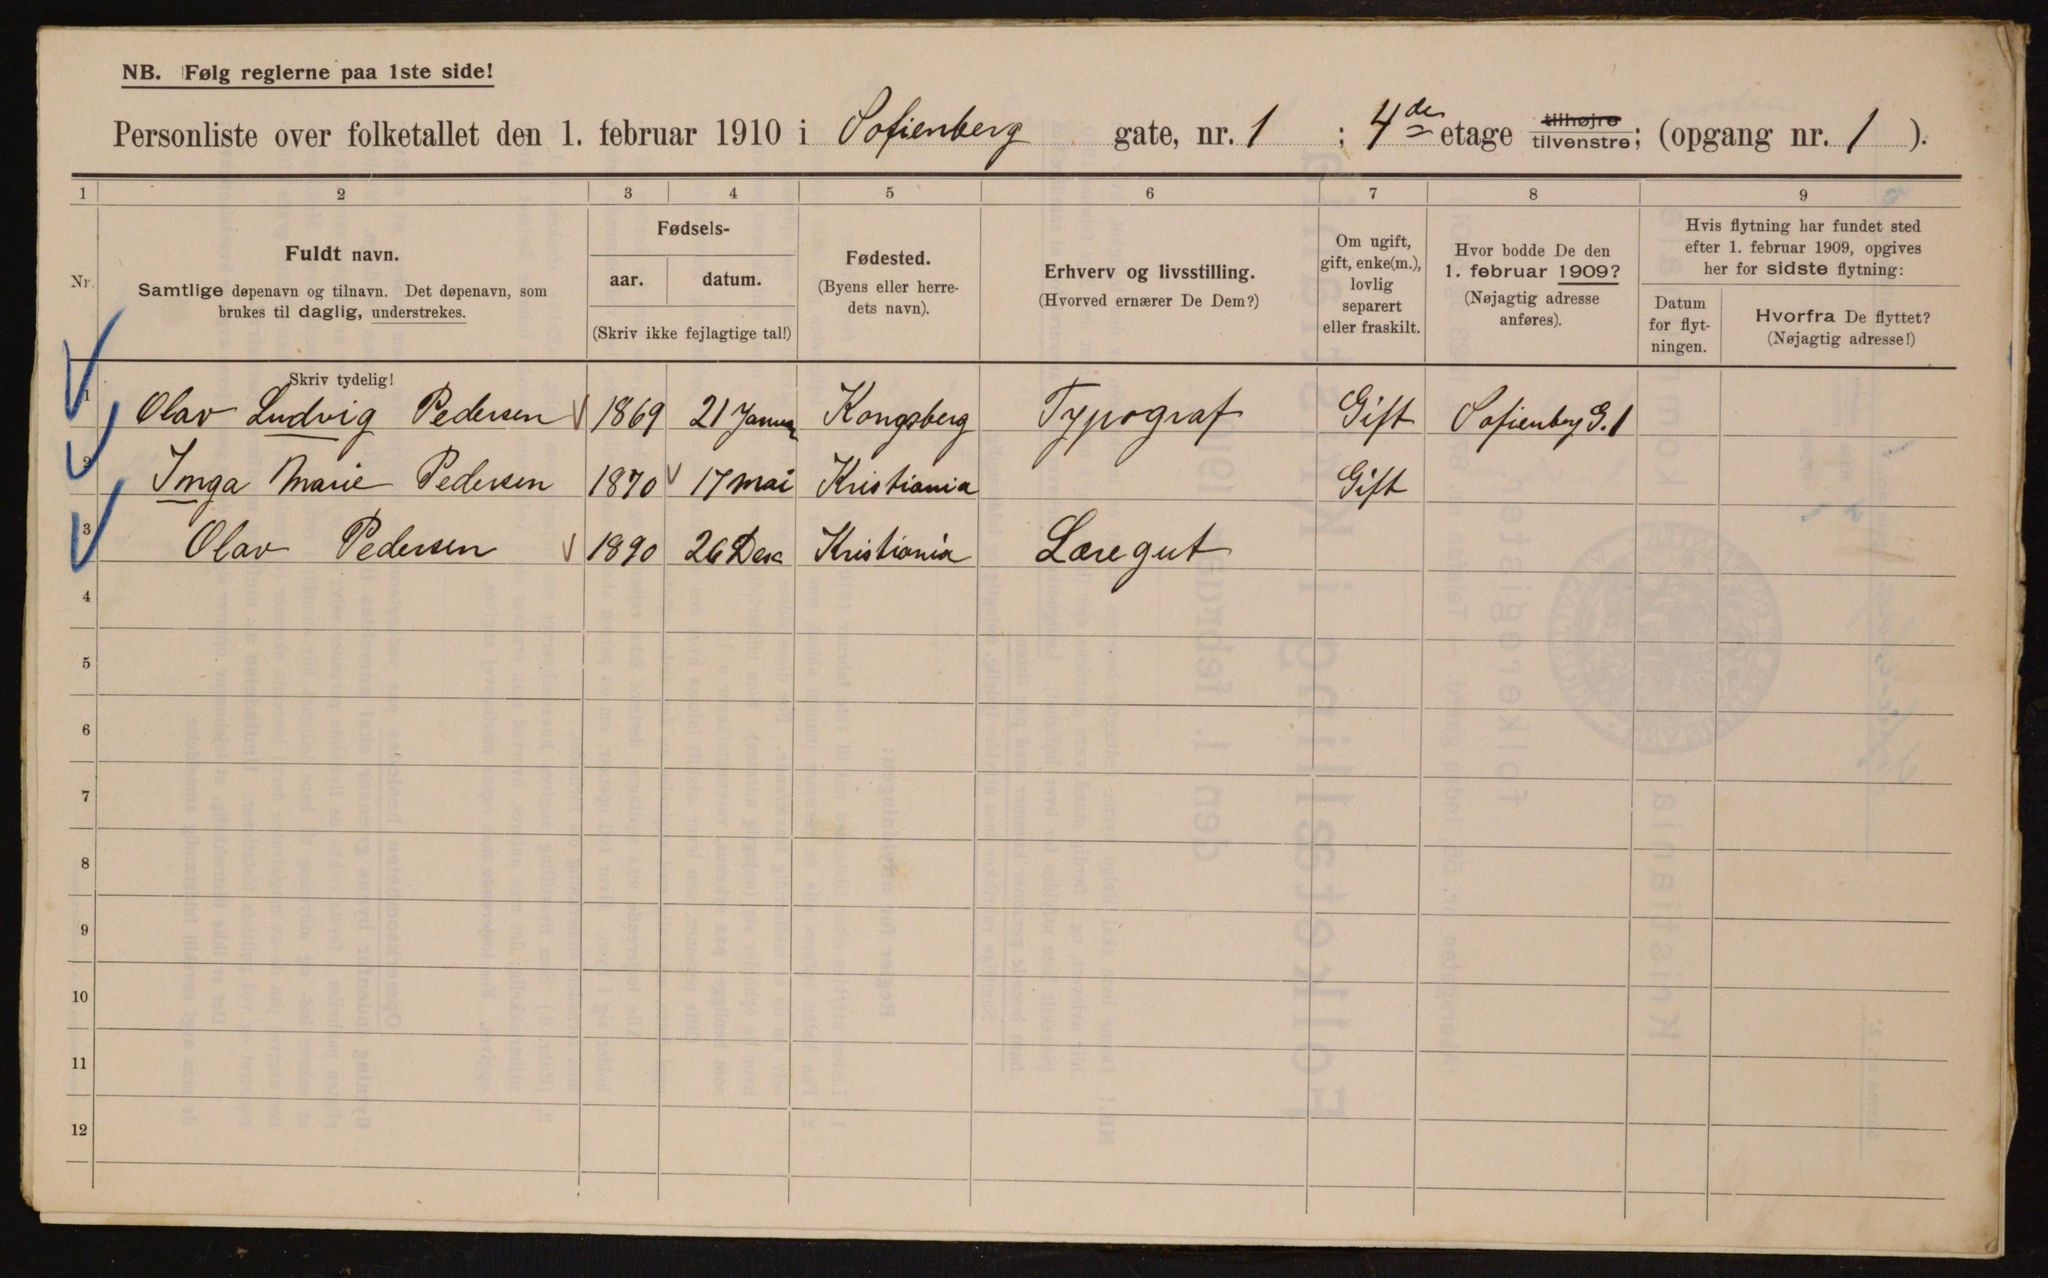 NB. Følg reglerne paa 1ste side!
Personliste over folketallet den 1. februar 1910 i Sofienberg gate, nr. 1 ; 4de etage tilhøjre tilvenstre; (opgang nr. 1 ).
1 2 3 4 5 6 7 8 9
Nr.
Fuldt navn.
Samtlige døpenavn og tilnavn. Det døpenavn, som
brukes til daglig, understrekes.
Fødsels-
aar. datum.
(Skriv ikke fejlagtige tal!)
Fødested.
(Byens eller herre-
dets navn).
Erhverv og livsstilling.
(Hvorved ernærer De Dem?)
Om ugift,
gift, enke(m.),
lovlig
separert
eller fraskilt.
Hvor bodde De den
1. februar 1909?
(Nøjagtig adresse
anføres).
Hvis flytning har fundet sted
efter 1. februar 1909, opgives
her for sidste flytning:
Datum
for flyt-
ningen.
Hvorfra De flyttet?
(Nøjagtig adresse!)
Skriv tydelig!
1 Olav Ludvig Pedersen 1869 21 Januar Kongsberg Typograf Gift Sofienberg G. 1
2 Inga Marie Pedersen 1870 17 Mai Kristiania Gift
3 Olav Pedersen 1890 26 Des Kristiania Læregut
4
5
6
7
8
9
10
11
12